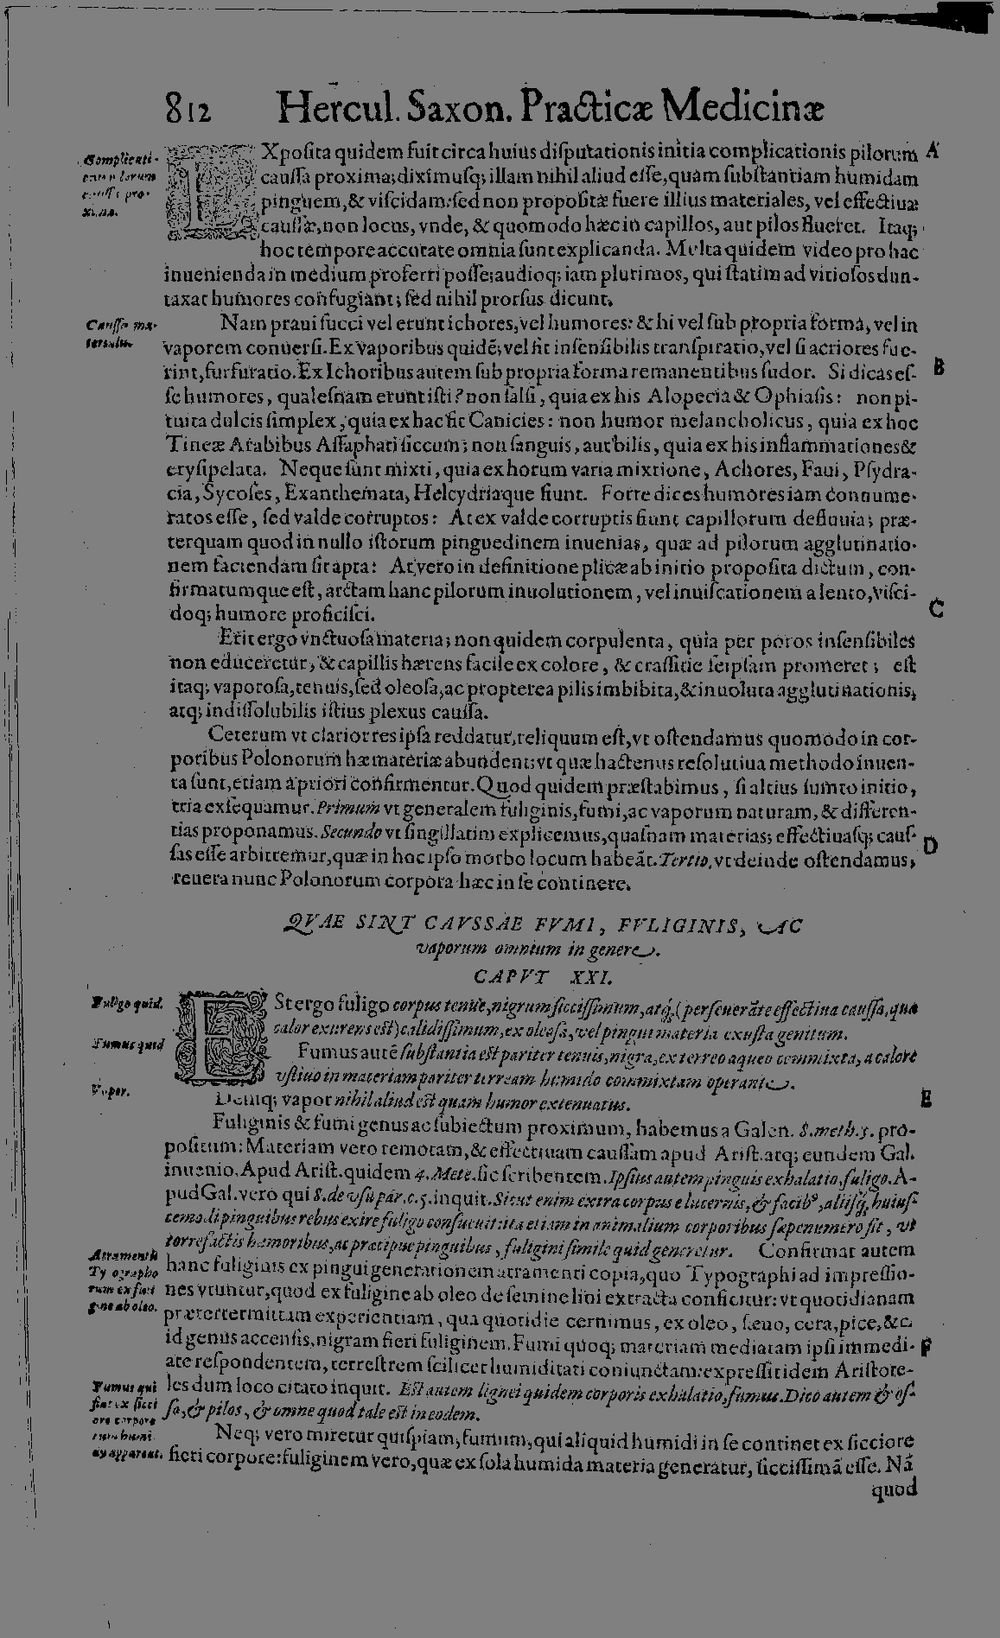 812 Hercul. Saxon. Practicæ Medicinæ
Complicati-
pro-
xima.
EXposita quidem fuit circa huius disputationis initia complicationis pilorum A
caussa proxima; diximusq; illam nihil aliud esse, quam substantiam humidam
pinguem, & viscidam: sed non propositæ fuere illius materiales, vel effectiuæ
caussæ, non locus, vnde, & quomodo hæc in capillos, aut pilos flueret. Itaq;
hoc tempore accurate omnia sunt explicanda. Multa quidem video pro hac
inuenienda in medium proferri posse; audioq; iam plurimos, qui statim ad vitiosos dun-
taxat humores confugiant; sed nihil prorsus dicunt.
Caussa ma-
terialis.
Nam praui succi vel erunt ichores, vel humores: & hi vel sub propria forma, vel in
vaporem conuersi. Ex vaporibus quidẽ; vel fit insensibilis transpiratio, vel si acriores fue-
rint, furfuratio. Ex Ichoribus autem sub propria forma remanentibus sudor. Si dicas es- B
se humores, qualesnam erunt isti? non salsi, quia ex his Alopecia & Ophiasis: non pi-
tuita dulcis simplex, quia ex hac fit Canicies: non humor melancholicus, quia ex hoc
Tineæ Arabibus Assaphati siccum; non sanguis, aut bilis, quia ex his inflammationes &
erysipelata. Neque sunt mixti, quia ex horum varia mixtione, Achores, Faui, Psydra-
cia, Sycoses, Exanthemata, Helcydriaque fiunt. Forte dices humores iam connume-
ratos esse, sed valde corruptos: At ex valde corruptis fiunt capillorum defluuia; præ-
terquam quod in nullo istorum pinguedinem inuenias, quæ ad pilorum agglutinatio-
nem faciendam sit apta: At vero in definitione plicæ ab initio proposita dictum, con-
firmatumque est, arctam hanc pilorum inuolutionem, vel inuiscationem a lento, visci- C
doq; humore proficisci.
Erit ergo vnctuosa materia; non quidem corpulenta, quia per poros insensibiles
non educeretur, & capillis hærens facile ex colore, & crassitie seipsam promeret; est
itaq; vaporosa, tenuis, sed oleosa, ac propterea pilis imbibita, & inuoluta agglutinationis,
atq; indissolubilis istius plexus caussa.
Ceterum vt clarior res ipsa reddatur, reliquum est, vt ostendamus quomodo in cor-
poribus Polonorum hæ materiæ abundent; vt quæ hactenus resolutiua methodo inuen-
ta sunt, etiam a priori confirmentur. Quod quidem præstabimus, si altius sumto initio,
tria exsequamur. Primum vt generalem fuliginis, fumi, ac vaporum naturam, & differen-
tias proponamus. Secundo vt singillatim explicemus, quasnam materias; effectiuasq; caus- D
sas esse arbitremur, quæ in hoc ipso morbo locum habeãt. Tertio, vt deinde ostendamus,
reuera nunc Polonorum corpora hæc in se continere.
QVAE SINT CAVSSAE FVMI, FVLIGINIS, AC
vaporum omnium in genere.
CAPVT XXI.
Fuligo quid.
EStergo fuligo corpus tenue, nigrum siccissimum, atq; (perseuerãte effectiua caussa, qua
calor exurens est) calidissimum, ex oleosa, vel pingui materia exusta genitum.
Fumus quid
Fumus autẽ substantia est pariter tenuis, nigra, ex terreo aqueo commixta, a calore
vstiuo in materiam pariter terream humido commixtam operante.
Vapor.
Deniq; vapor nihil aliud est quam humor extenuatus. E
Fuliginis & fumi genus ac subiectum proximum, habemus a Galen. 8. meth. 3. pro-
positum: Materiam vero remotam, & effectiuam caussam apud Arist. atq; eundem Gal.
inuenio. Apud Arist. quidem 4. Mete. sic scribentem. Ipsius autem pinguis exhalatio, fuligo. A-
pud Gal. vero qui 8. de vsu par. c. 5. inquit. Sicut enim extra corpus e lucernis, & facib⁹, aliisq; huius-
cemodi pinguibus rebus exire fuligo consueuit: ita etiam in animalium corporibus sæpenumero fit, vt
torrefactis humoribus, ac præcipue pinguibus, fuligini simile quid generetur. Confirmat autem
Atramentũ
Typographo
rum ex fuli
gine ab oleo.
hanc fuliginis ex pingui generationem atramenti copia, quo Typographi ad impressio-
nes vtuntur, quod ex fuligine ab oleo de semine lini extracta conficitur: vt quotidianam
prætertermittam experientiam, qua quotidie cernimus, ex oleo, seuo, cera, pice, &c.
id genus accensis, nigram fieri fuliginem. Fumi quoq; materiam mediatam ipsi immedi- F
ate respondentem, terrestrem scilicet humiditati coniunctam: expressit idem Aristote-
les dum loco citato inquit. Est autem lignei quidem corporis exhalatio, fumus. Dico autem & os-
sa, & pilos, & omne quod tale est in eodem.
Fumus qui
fiat ex sicci
ore corpore
humi-
dus apparent.
Neq; vero miretur quispiam, fumum, qui aliquid humidi in se continet ex sicciore
fieri corpore: fuliginem vero, quæ ex sola humida materia generatur, siccissimã esse. Nã
quod